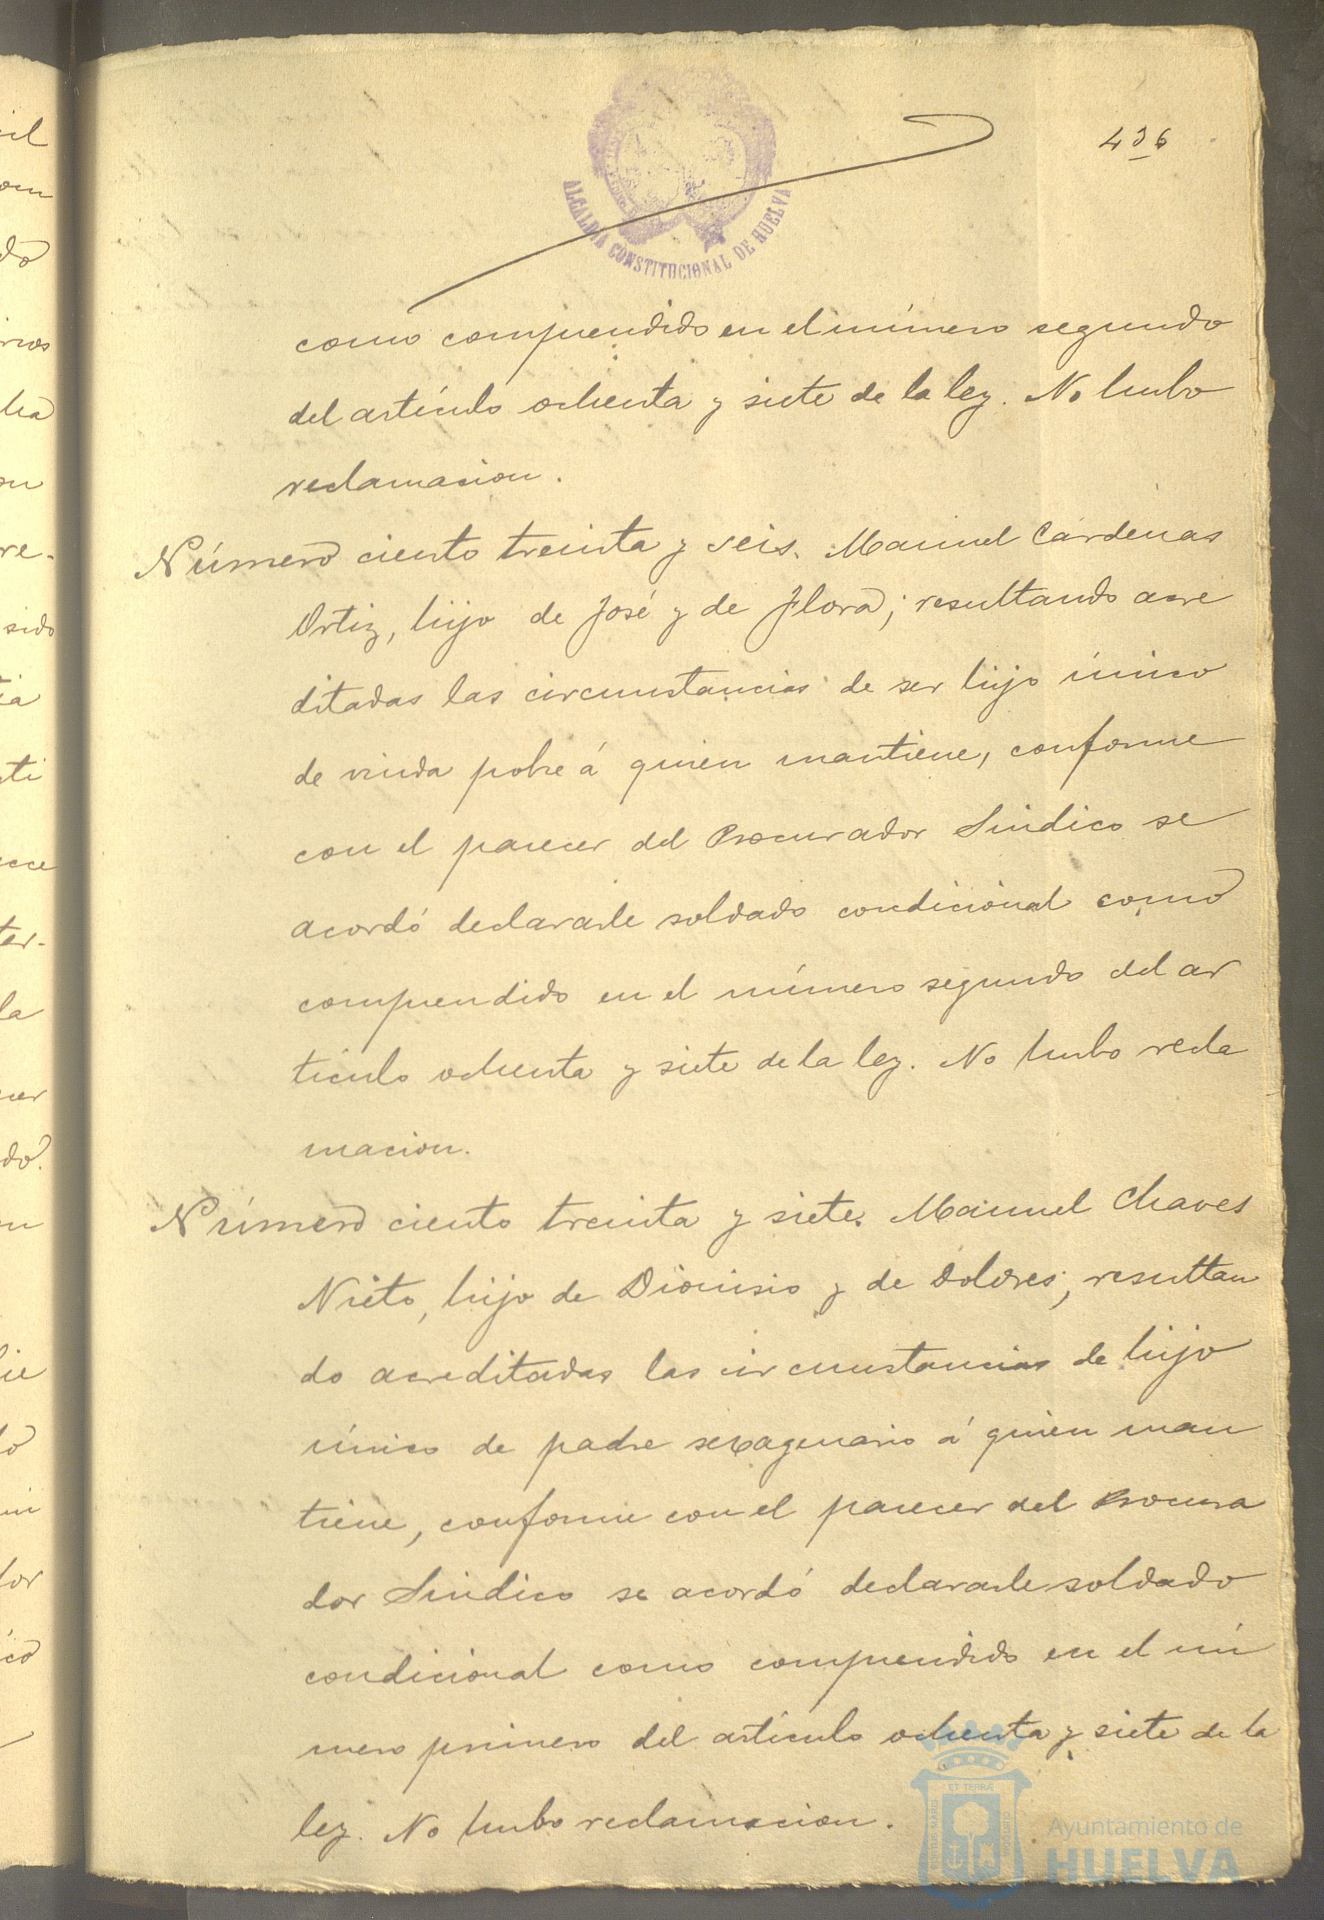 436
ALCALDIA CONSTITUCIONAL DE HUELVA
como comprendido en el número segundo
del artículo ochenta y siete de la ley. No hubo
reclamacion.
Número ciento treinta y seis. Manuel Cárdenas
Ortiz, hijo de José y de Flora; resultando acre
ditadas las circunstancias de ser hijo único
de viuda pobre á quien mantiene, conforme
con el parecer del Procurador Sindico se
acordó declararle soldado condicional como
comprendido en el número segundo del ar
tículo ochenta y siete de la ley. No hubo recla
macion.
Número ciento treinta y siete. Manuel Chaves
Nieto, hijo de Dionisio y de Dolores; resultan
do acreditadas las circunstancias de hijo
único de padre sexagenario á quien man
tiene, conforme con el parecer del Procura
dor Sindico se acordó declararle soldado
condicional como comprendido en el nú
mero primero del articulo ochenta y siete de la
ley. No hubo reclamacion.
Ayuntamiento de
HUELVA